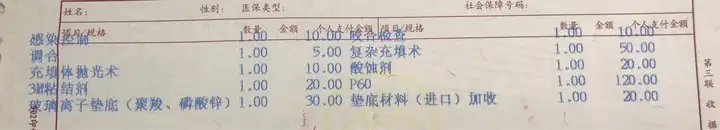 姓名： 性别： 医保类型： 社会保障号码：
项目/规格 数量 金额 个人支付金额 项目/规格 数量 金额 个人支付金额
感染控制 1.00 10.00 咬合检查 1.00 10.00
调合 1.00 5.00 复杂充填术 1.00 50.00
充填体抛光术 1.00 10.00 酸蚀剂 1.00 20.00
3M粘结剂 1.00 20.00 P60 1.00 120.00
玻璃离子垫底（聚羧、磷酸锌） 1.00 30.00 垫底材料（进口）加收 1.00 20.00
第三联 收据